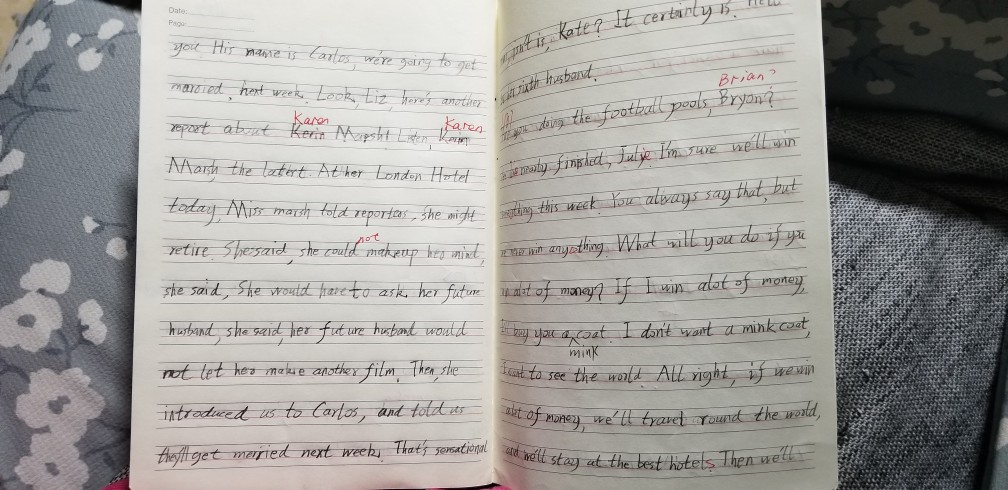 Date:
Page:
you. His name is Carlos, we're going to get
married, next week. Look, Liz, here's another
Karen Karen
report about Kerin Marsh! Listen,
Marsh, the latest. At her London Hotel
today, Miss marsh told reporters, she might
not
retire. She said, she could makeup her mind,
she said, She would have to ask, her future
husband, she said, her future husband would
not let her make another film. Then, she
introduced us to Carlos, and told us
they'll get merried next week. That's sensational
isn't is, Kate? It certainly is.
sixth husband.
Brian?
you doing the football pools, Bryon?
nearly finished, Julie I'm sure we'll win
this week. You always say that, but
win anything. What will you do if yu
alot of money? If I win alot of money,
I'll buy you a coat. I don't want a mink coat,
mink
I want to see the world. All right, if we win
alot of money, we'll travel round the world,
and we'll stay at the best hotels Then we'll